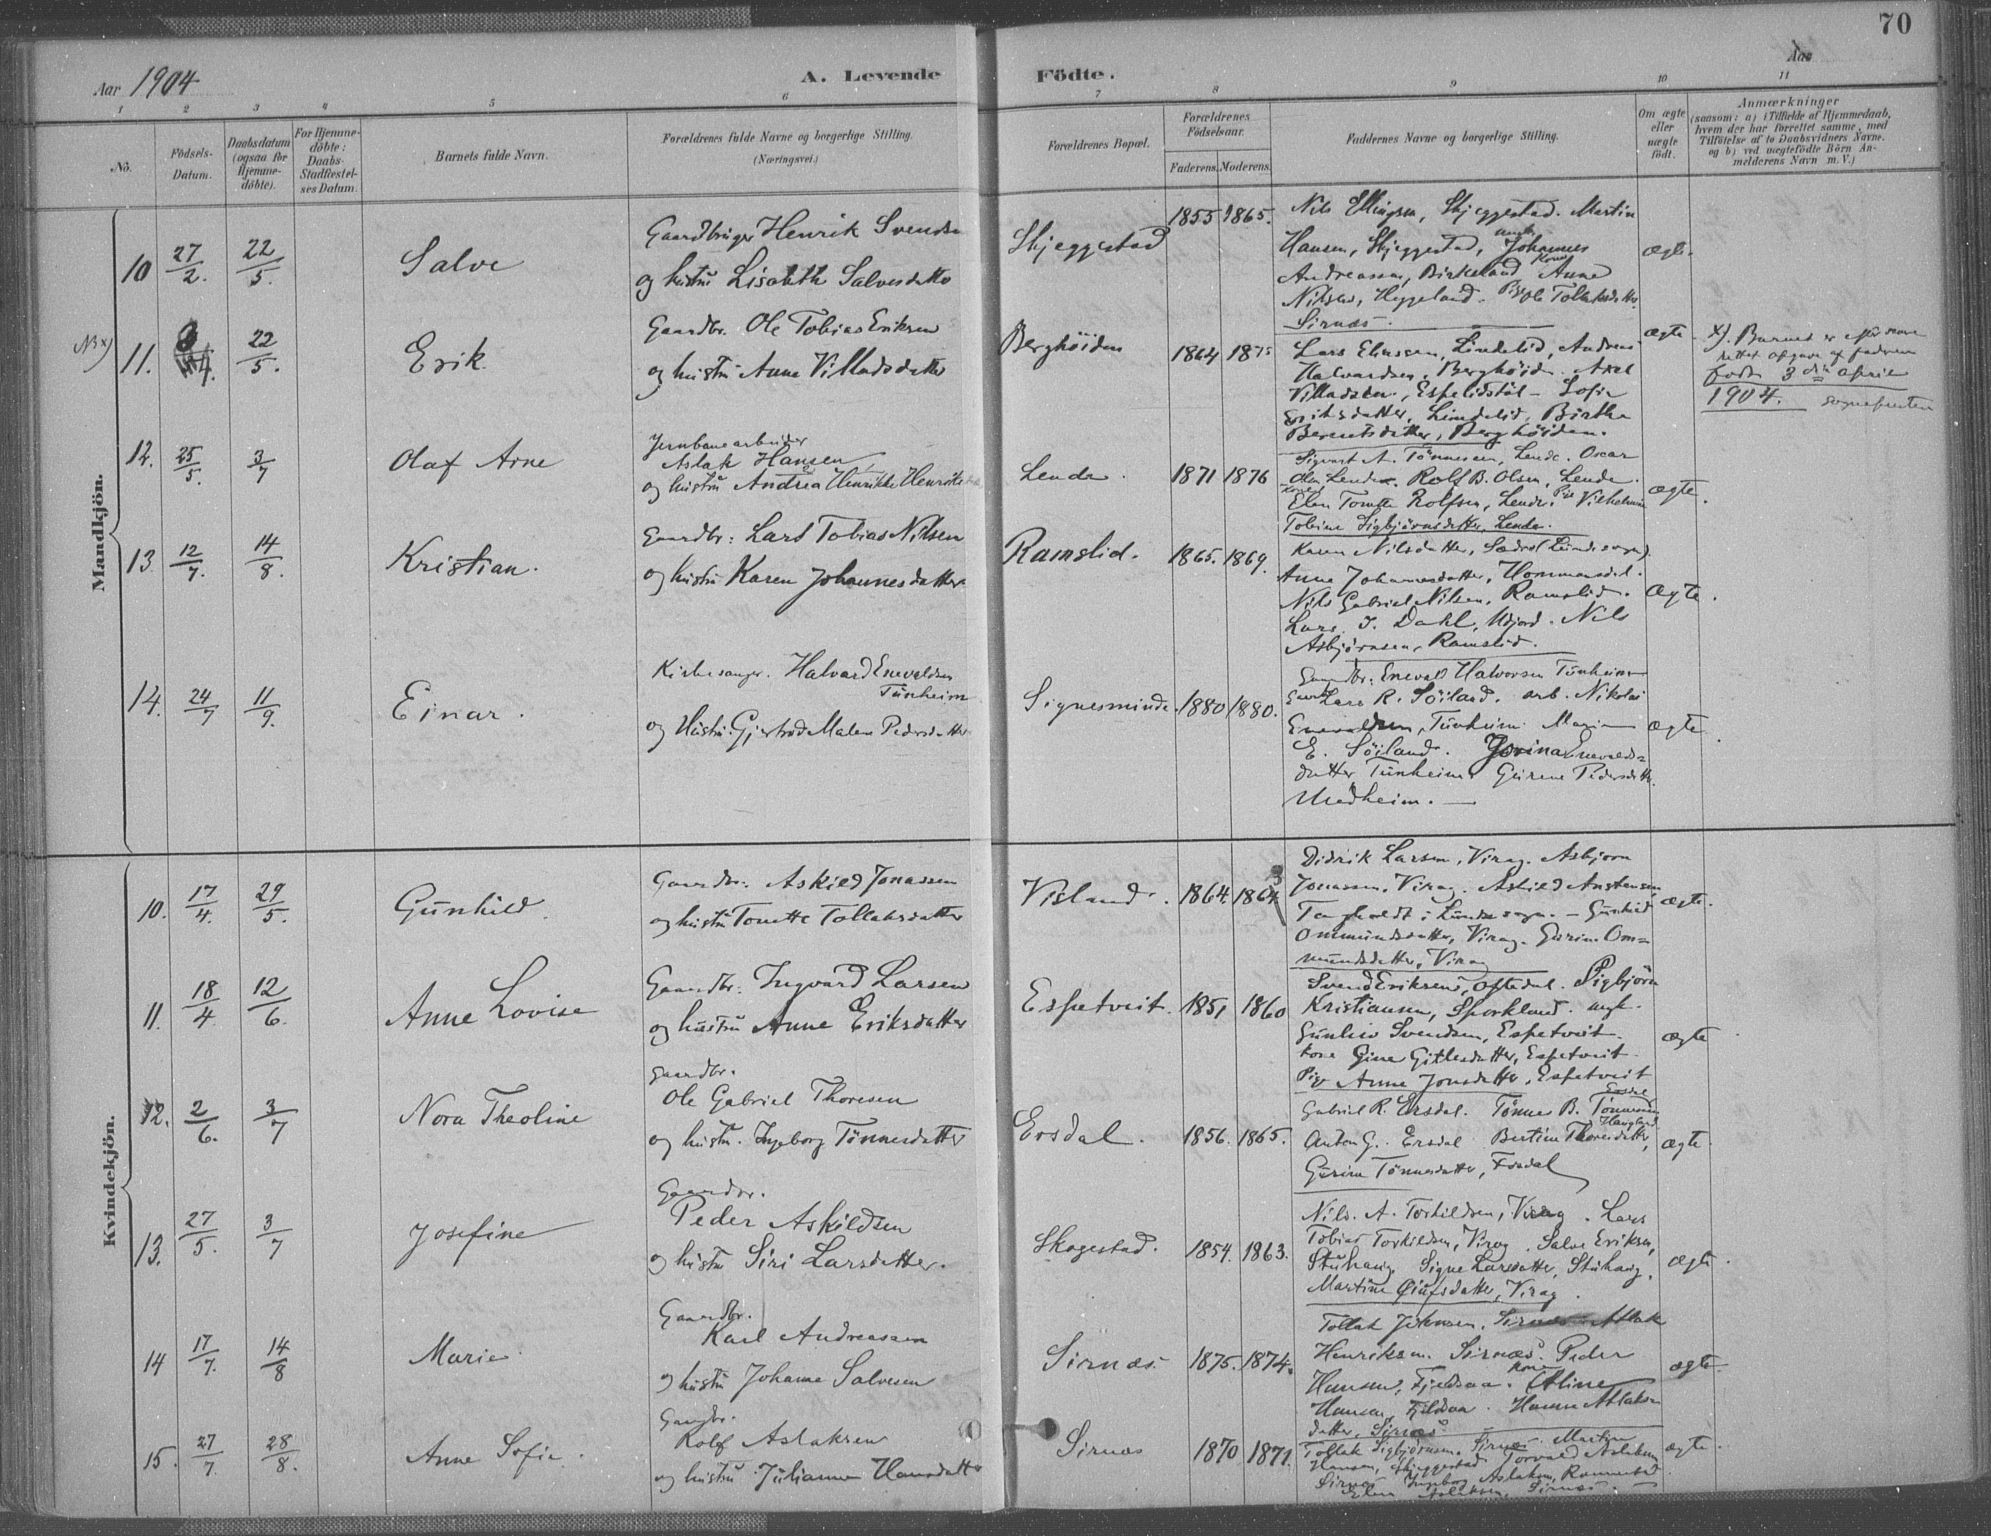 70
Aar 1904
A. Levende
Födte.
Aar
1 2 3 4 5 6 7 8 9 10 11
No.
Födsels-Datum.
Daabsdatum (ogsaa for Hjemme-döbte).
For Hjemme-döbte: Daabs-Stadfæstel-ses Datum.
Barnets fulde Navn.
Forældrenes fulde Navne og borgerlige Stilling.
(Næringsvei.)
Forældrenes Bopæl.
Forældrenes Födselsaar.
Faderens. Moderens.
Faddernes Navne og borgerlige Stilling.
Om ægte eller uægte födt.
Anmærkninger
(saasom: a) i Tilfælde af Hjemmedaab,
hvem der har forrettet samme, med
Tilföielse af to Daabsvidners Navne.
og b) ved uægtefödte Börn An-
melderens Navn m. V.)
Mandkjön.
10 27/2. 22/5. Salve
Gaardbruger Henrik Svendsen
og hustru Lisabeth Salvesdatter
Skjeggestad 1855 1865.
Nils Ellingsen, Skjeggestad. Martin
Hansen, Skjeggestad, Johannes
Andreassen, Birkeland Kone Anne
Heggeland. Pige Tollaksdatter
Sirnæs.
ægte.
NB x)
11. 22/5. Erik
Gaardbr. Ole Tobias Eriksen
og hustru Anne Villadsdatter
Berghöiden 1864 1875
Lars Eliassen, Lindelid, Andreas
Halvardsen, Berghöiden. Axel
Villadsen, Espelidstöl - Sofie
Eriksdatter, Lindelid, Birthe
Berentsdatter, Berghöiden.
ægte
x). Barnet er efter
rettet opgave af faderen
födt 3die April
1904. Sognepresten
12. 25/5. 3/7 Olaf Arne
Jernbanearbeider
Aslak Hansen
og hustru Andrea Henrikke
Lende. 1871 1876
Sigvart A. Tönnesen, Lende. Oscar
Olsen Lende. Rolf B. Olsen, Lende.
Kone Elen Tomette Rolfsen, Lende. Pige Vilhelmine
Tobine Sigbjörnsdatter, Lende.
ægte.
13 12/7. 14/8. Kristian.
Gaardbr: Lars Tobias Nilsen
og hustru Karen Johannesdatter
Ramslid. 1865. 1869.
Karen Nilsdatter, (Lunde sogn).
Anne Johannesdatter, Hommersdal.
Nils Gabriel Nilsen, Ramslid.
Lars J. Dahl, Nils
Asbjörnsen, Ramslid.
Ægte.
14. 24/7 11/9. Einar.
Kirkesanger. Halvard Enevaldsen
Tunheim
og Hustru Gjertrud Malene Pedersdatter
Signesminde 1880 1880.
Gaardbr: Enevald Halvorsen Tunheim
Lars R. Söiland. arb. Nikolai
Enevaldsen, Tunheim. Marie
E. Söiland. Jorina Enevalds-
datter Tunheim Gurine Pedersdatter
Medheim.
ægte.
Kvindekjön.
10. 17/4. 29/5. Gunhild
Gaardbr. Askild Jonassen
og hustru Tonette Tollaksdatter
Visland. 1864. 1863
Didrik Larsen, Virag. Asbjörn
Jonassen, Virag. Askild Anstensen
i Lunde sogn. - Gunhild
Ommundsdatter, Virag. Gurine Om-
mundsdatter, Virag
ægte.
11. 18/4 12/6. Anne Lovise
Gaardbr. Ingvard Larsen
og hustru Anne Eriksdatter
Espetveit. 1851 1860
Svend Eriksen, Oftedal. Sigbjörn
Kristiansen, Sporkland. ungk.
Gunleiv Svendsen, Espetveit.
kone Gine Gitlesdatter, Espetveit.
Pige Anne Jonsdatter, Espetveit
ægte
12. 2/6. 3/7 Nora Theoline
Gaardbr.
Ole Gabriel Thoresen
og hustr. Ingeborg Tönnesdatter
Ersdal. 1856. 1865.
Gabriel R. Ersdal. Tönnes B. Tönnesen
Anton G. Ersdal Bertine Thoresdatter,
Haugland
Gurine Tönnesdatter,
ægte
13. 27/5. 3/7 Josefine
Gaardbr.
Peder Askildsen
og hustru Siri Larsdatter.
Skogestad. 1854. 1863.
Nils. A. Torkildsen, Virag. Lars
Tobias Torkildsen, Virag. Salve Eriksen,
Stuhaug Signe Larsdatter, Stuhaug,
Martine Oiufsdatter, Virag.
ægte.
14 17/7. 14/8 Marie
Gaardbr.
Karl Andreassen
og hustru Johanne Salvesen
Sirnæs 1875. 1874.
Tollak Johnsen, Sirnæs. Aslak
Henriksen. Sirnæs. Peder
Hansen, Fjeldsaa. Kone Aline
Hansen, Fjeldsaa. Hanne Aslaks-
datter, Sirnæs
ægte
15. 27/7. 28/8. Anne Sofie.
Gaardbr.
Rolf Aslaksen
og hustru Julianne Hansdatter
Sirnæs 1870 1871.
Tollak Sigbjörnsen. Sirnæs. Martin
Hansen, Skjeggestad Torvald Aslaksen
Sirnæs Ingeborg Aslaksen, Rannestad
Elen Aslaksen, Sirnæs.
ægte.